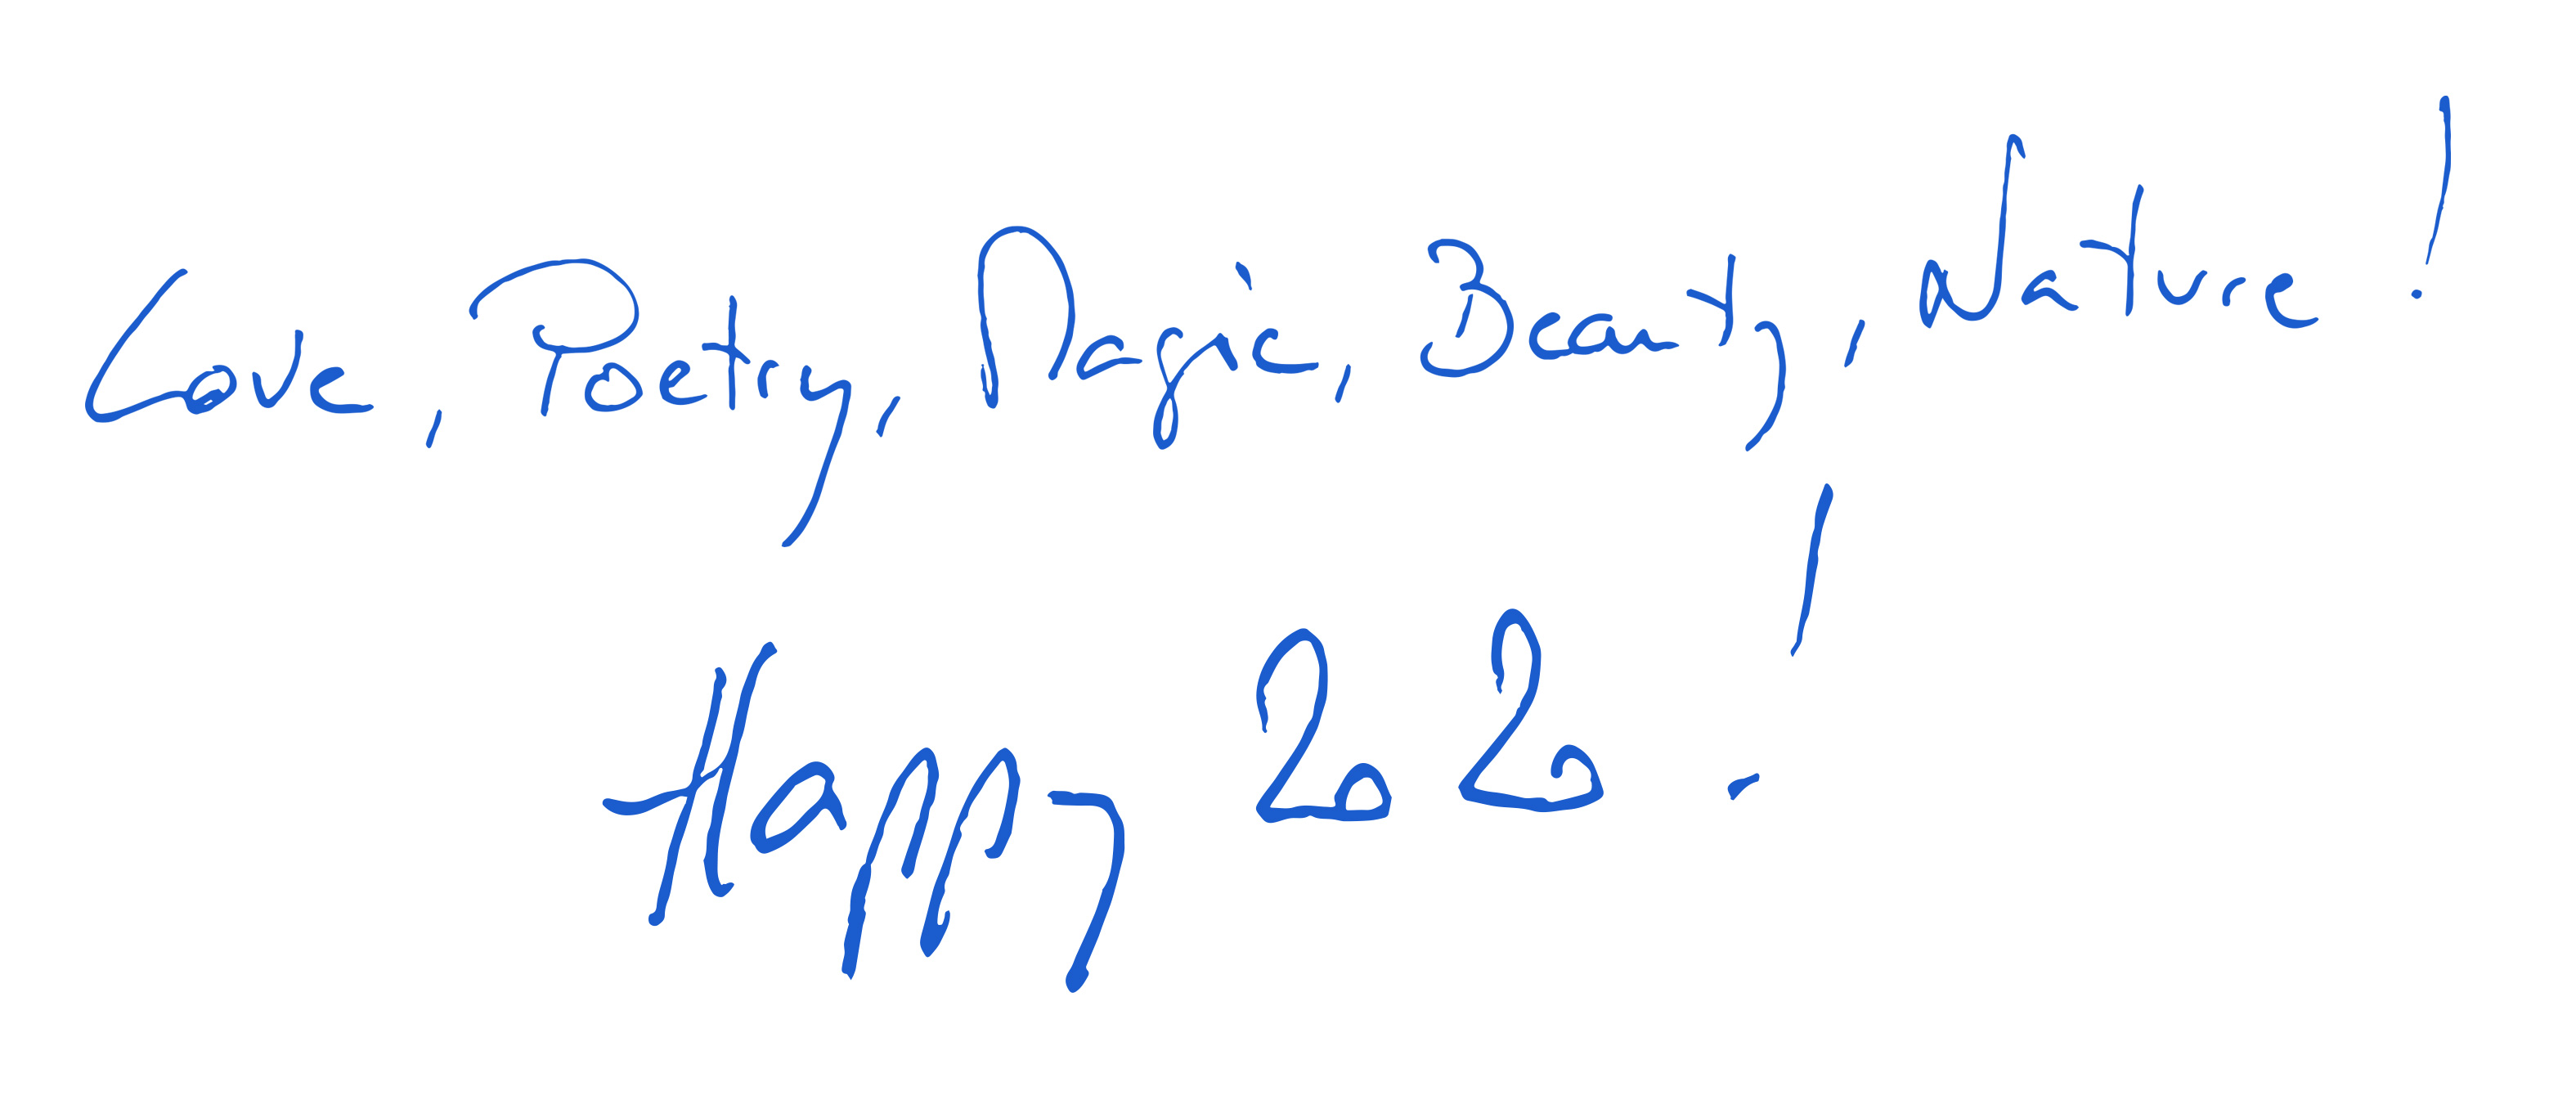 Love, Poetry, Magic, Beauty, Nature !
Happy 2020 !